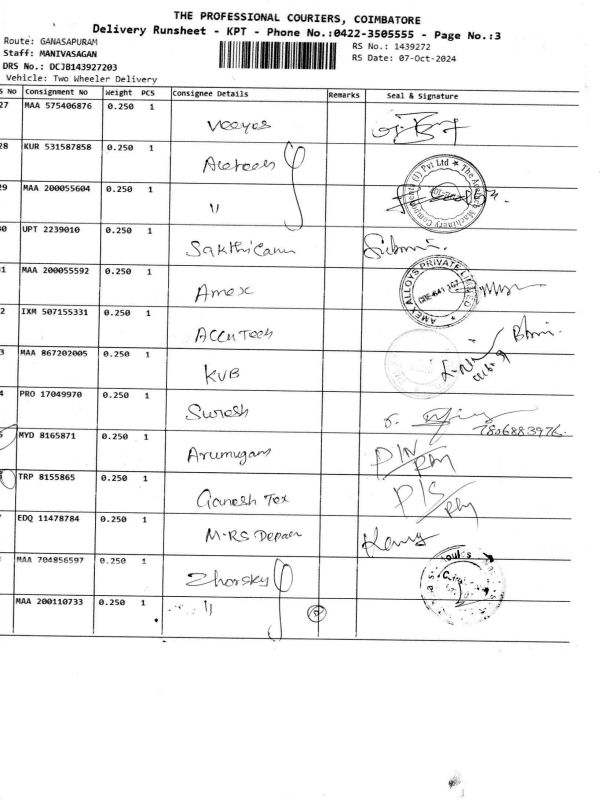 THE PROFESSIONAL COURIERS, COIMBATORE
Delivery Runsheet - KPT - Phone No.:0422-3505555 - Page No.:3
Route: GANASAPURAM RS No.: 1439272
Staff: MANIVASAGAN RS Date: 07-Oct-2024
DRS No.: DCJB143927203
Vehicle: Two Wheeler Delivery
S No Consignment No Weight PCS Consignee Details Remarks Seal & Signature
27 MAA 575406876 0.250 1 Veeyes
28 KUR 531587858 0.250 1
29 MAA 200055604 0.250 1 "
30 UPT 2239010 0.250 1
31 MAA 200055592 0.250 1 Amex AMEX ALLOYS PRIVATE LIMITED
2 IXM 507155331 0.250 1 ACCuTech
3 MAA 867202005 0.250 1 KVB
4 PRO 17049970 0.250 1 Suresh 7806883976
MYD 8165871 0.250 1 Arumugam D/N
TRP 8155865 0.250 1 Ganesh Tex D/S
EDQ 11478784 0.250 1 M.RS
MAA 704856597 0.250 1
MAA 200110733 0.250 1 "